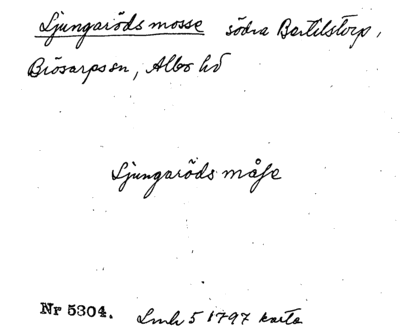 Ljungaröds mosse södra Bertilstorp,
Brösarps sn, Albo hd
Ljungaröds måse
Nr 5304. Lmk 5 1797 karta